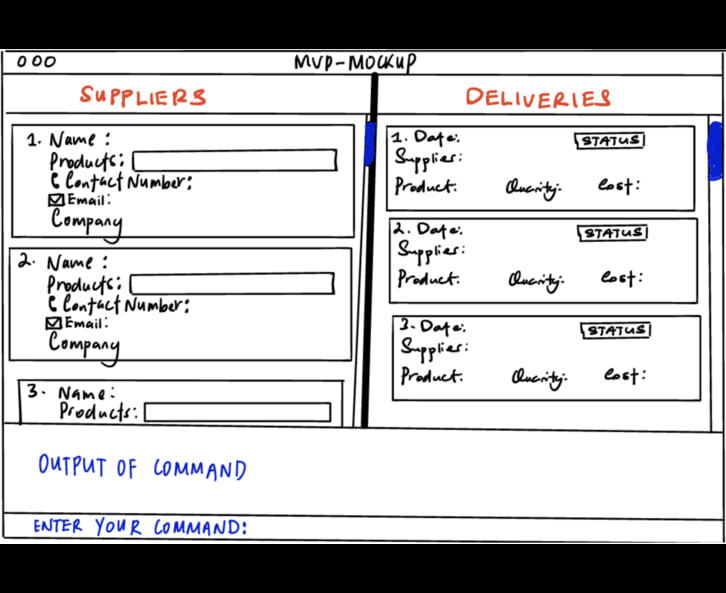 000 MVP-MOCKUP
SUPPLIERS
1. Name :
Products:
Contact Number:
Email:
Company
2. Name :
Products:
Contact Number:
Email:
Company
3. Name:
Products:
DELIVERIES
1. Date: STATUS
Supplier:
Product: Quantity: Cost:
2. Date: STATUS
Supplier:
Product: Quantity: Cost:
3. Date: STATUS
Supplier:
Product: Quantity: Cost:
OUTPUT OF COMMAND
ENTER YOUR COMMAND: